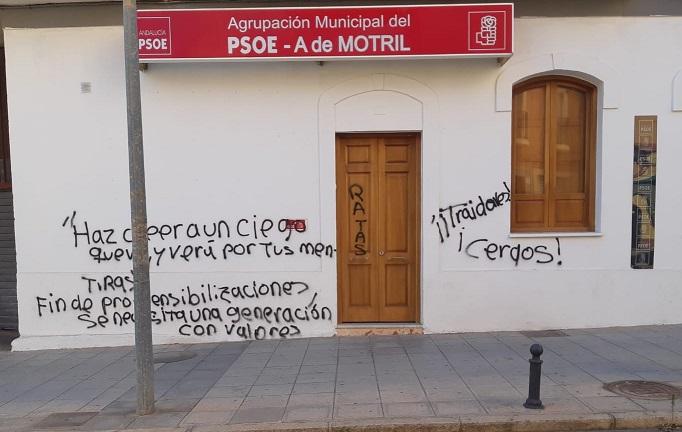 ANDALUCÍA
PSOE
Agrupación Municipal del
PSOE - A de MOTRIL
PSOE
"Haz creer a un ciego
que ve y verá por tus men-
TIRAS
Fin de pro sensibilizaciones,
Se necesita una generación
con valores
RATAS
¡¡Traidores!
¡Cerdos!
PSOE